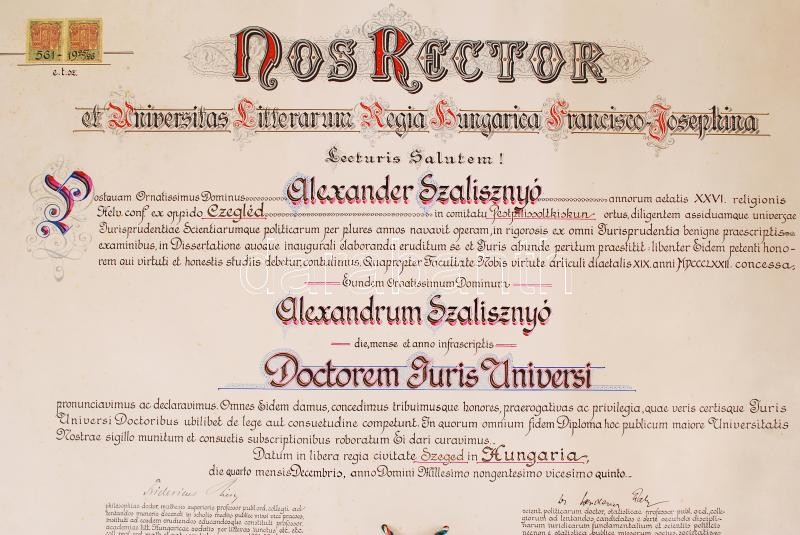 561 - 1925/26
e. t. sz.
NOS RECTOR
et Universitas Litterarum Regia Hungarica Francisco-Josephina
Lecturis Salutem!
Postquam Ornatissimus Dominus Alexander Szalisznyó annorum aetatis XXVI. religionis
Helv. conf. ex oppido Czegléd in comitatu Pestpilissoltkiskun ortus, diligentem assiduamque universae
Jurisprudentiae Scientiarumque politicarum per plures annos navavit operam, in rigorosis ex omni Jurisprudentia benigne praescriptis
examinibus, in Dissertatione quoque inaugurali elaboranda eruditum se et Juris abunde peritum praestitit: libenter Eidem petenti hono-
rem qui virtuti et honestis studiis debetur, contulimus. Quapropter Facultate Nobis virtute articuli diaetalis XIX. anni MDCCCLXXII. concessa,
Eundem Ornatissimum Dominum
Alexandrum Szalisznyó
die, mense et anno infrascriptis
Doctorem Juris Universi
pronunciavimus ac declaravimus. Omnes Eidem damus, concedimus tribuimusque honores, praerogativas ac privilegia, quae veris certisque Juris
Universi Doctoribus ubilibet de lege aut consuetudine competunt. In quorum omnium fidem Diploma hoc publicum maiore Universitatis
Nostrae sigillo munitum et consuetis subscriptionibus roboratum Ei dari curavimus.
Datum in libera regia civitate Szeged in Hungaria,
die quarto mensis Decembris, anno Domini Millesimo nongentesimo vicesimo quinto.
Fridericus
philosophiae doctor, mathesis superioris professor publ. ord., collegii ad
tentandos menoris docendi in scholis mediis publice
instituti ad eosdem erudiendos educandosque constituti professor,
academiae litt. Hungaricae sodalis
scient. politicarum doctor, statisticae professor publ. ord., colle-
giorum ad tentandos candidatos e serie secunda discipli-
narum juridicarum fundamentalium et scientiis politicis
darabanth